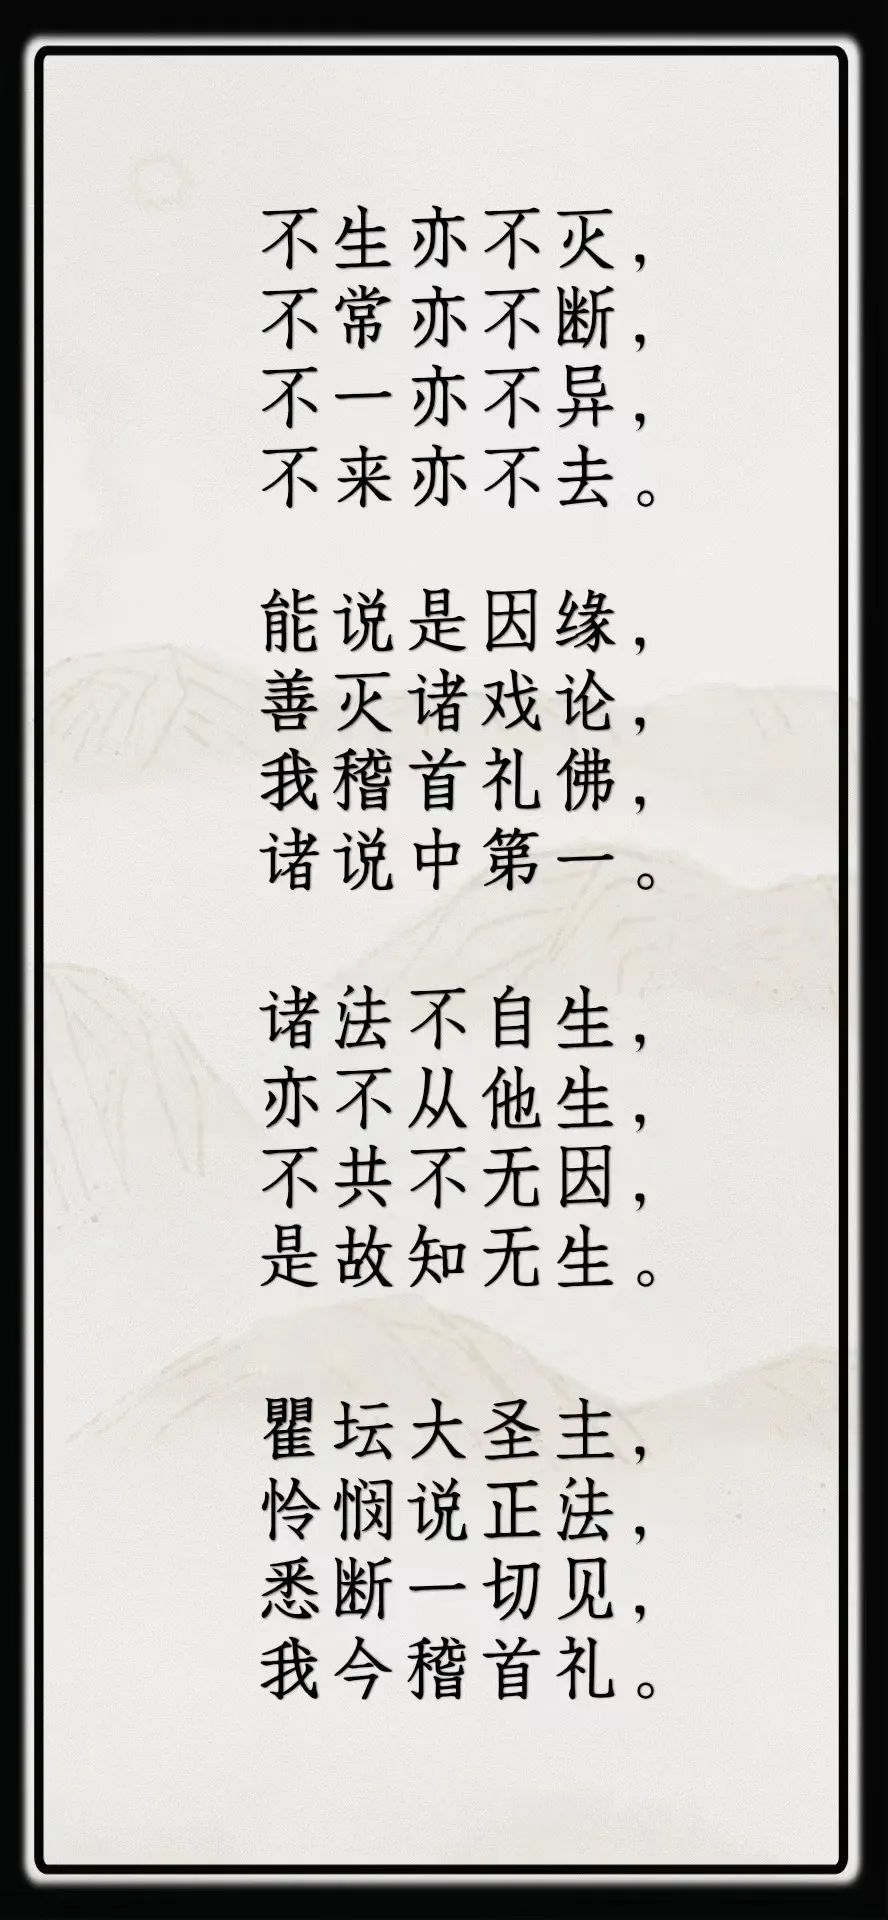 不生亦不灭，
不常亦不断，
不一亦不异，
不来亦不去。
能说是因缘，
善灭诸戏论，
我稽首礼佛，
诸说中第一。
诸法不自生，
亦不从他生，
不共不无因，
是故知无生。
瞿坛大圣主，
怜悯说正法，
悉断一切见，
我今稽首礼。